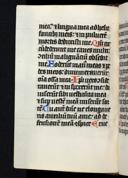 mea: et lingua mea adhesit
faucibus meis: et in pulverem
mortis deduxisti me. Quo
circumdederunt me canes multi:
malignantium obsedit
me. Foderunt manus meas et pe
des meos: dinumeraverunt om
nia ossa mea. Ipsi vero
et inspexerunt me: di
viserunt sibi vestimenta mea
et super vestem mea miserunt sor
tem Tu aute dne ne elongave
ris auxilium tuu a me: ad de
fensione mea conspice Erue